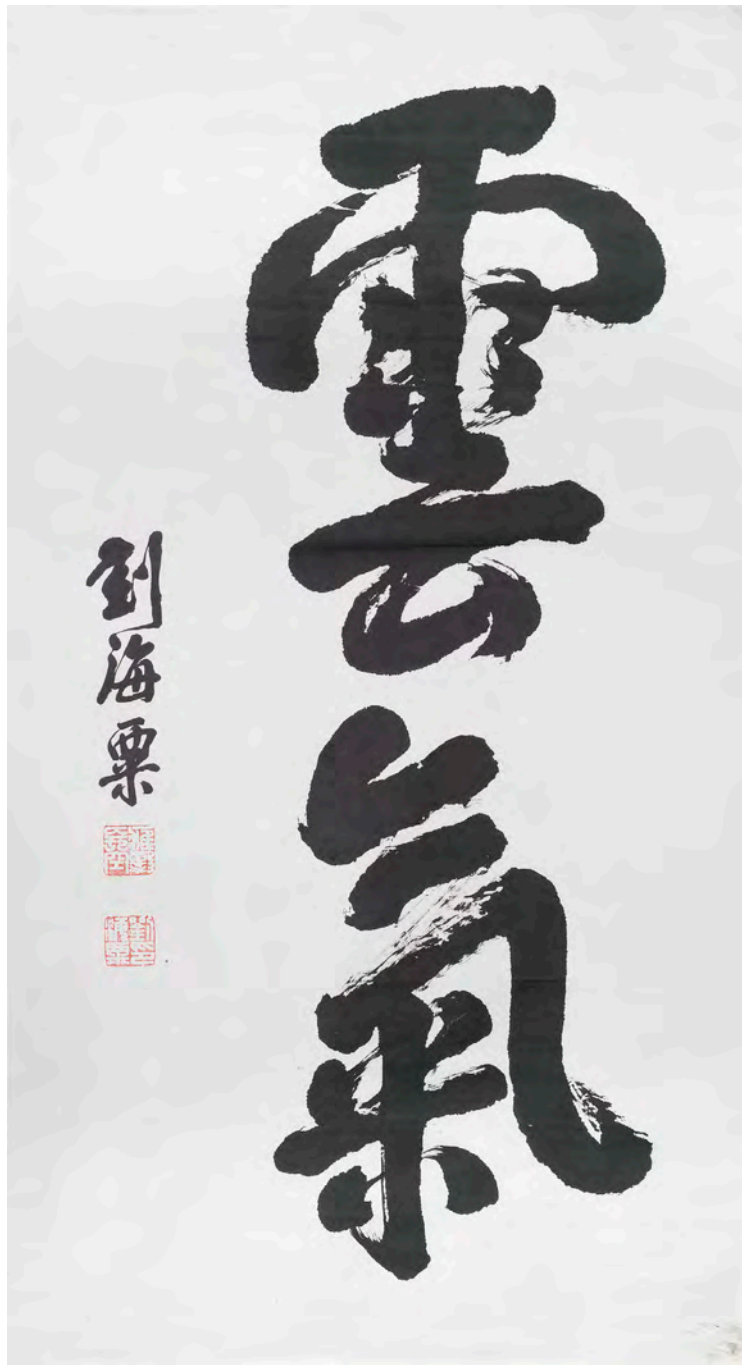 雲氣
劉海粟